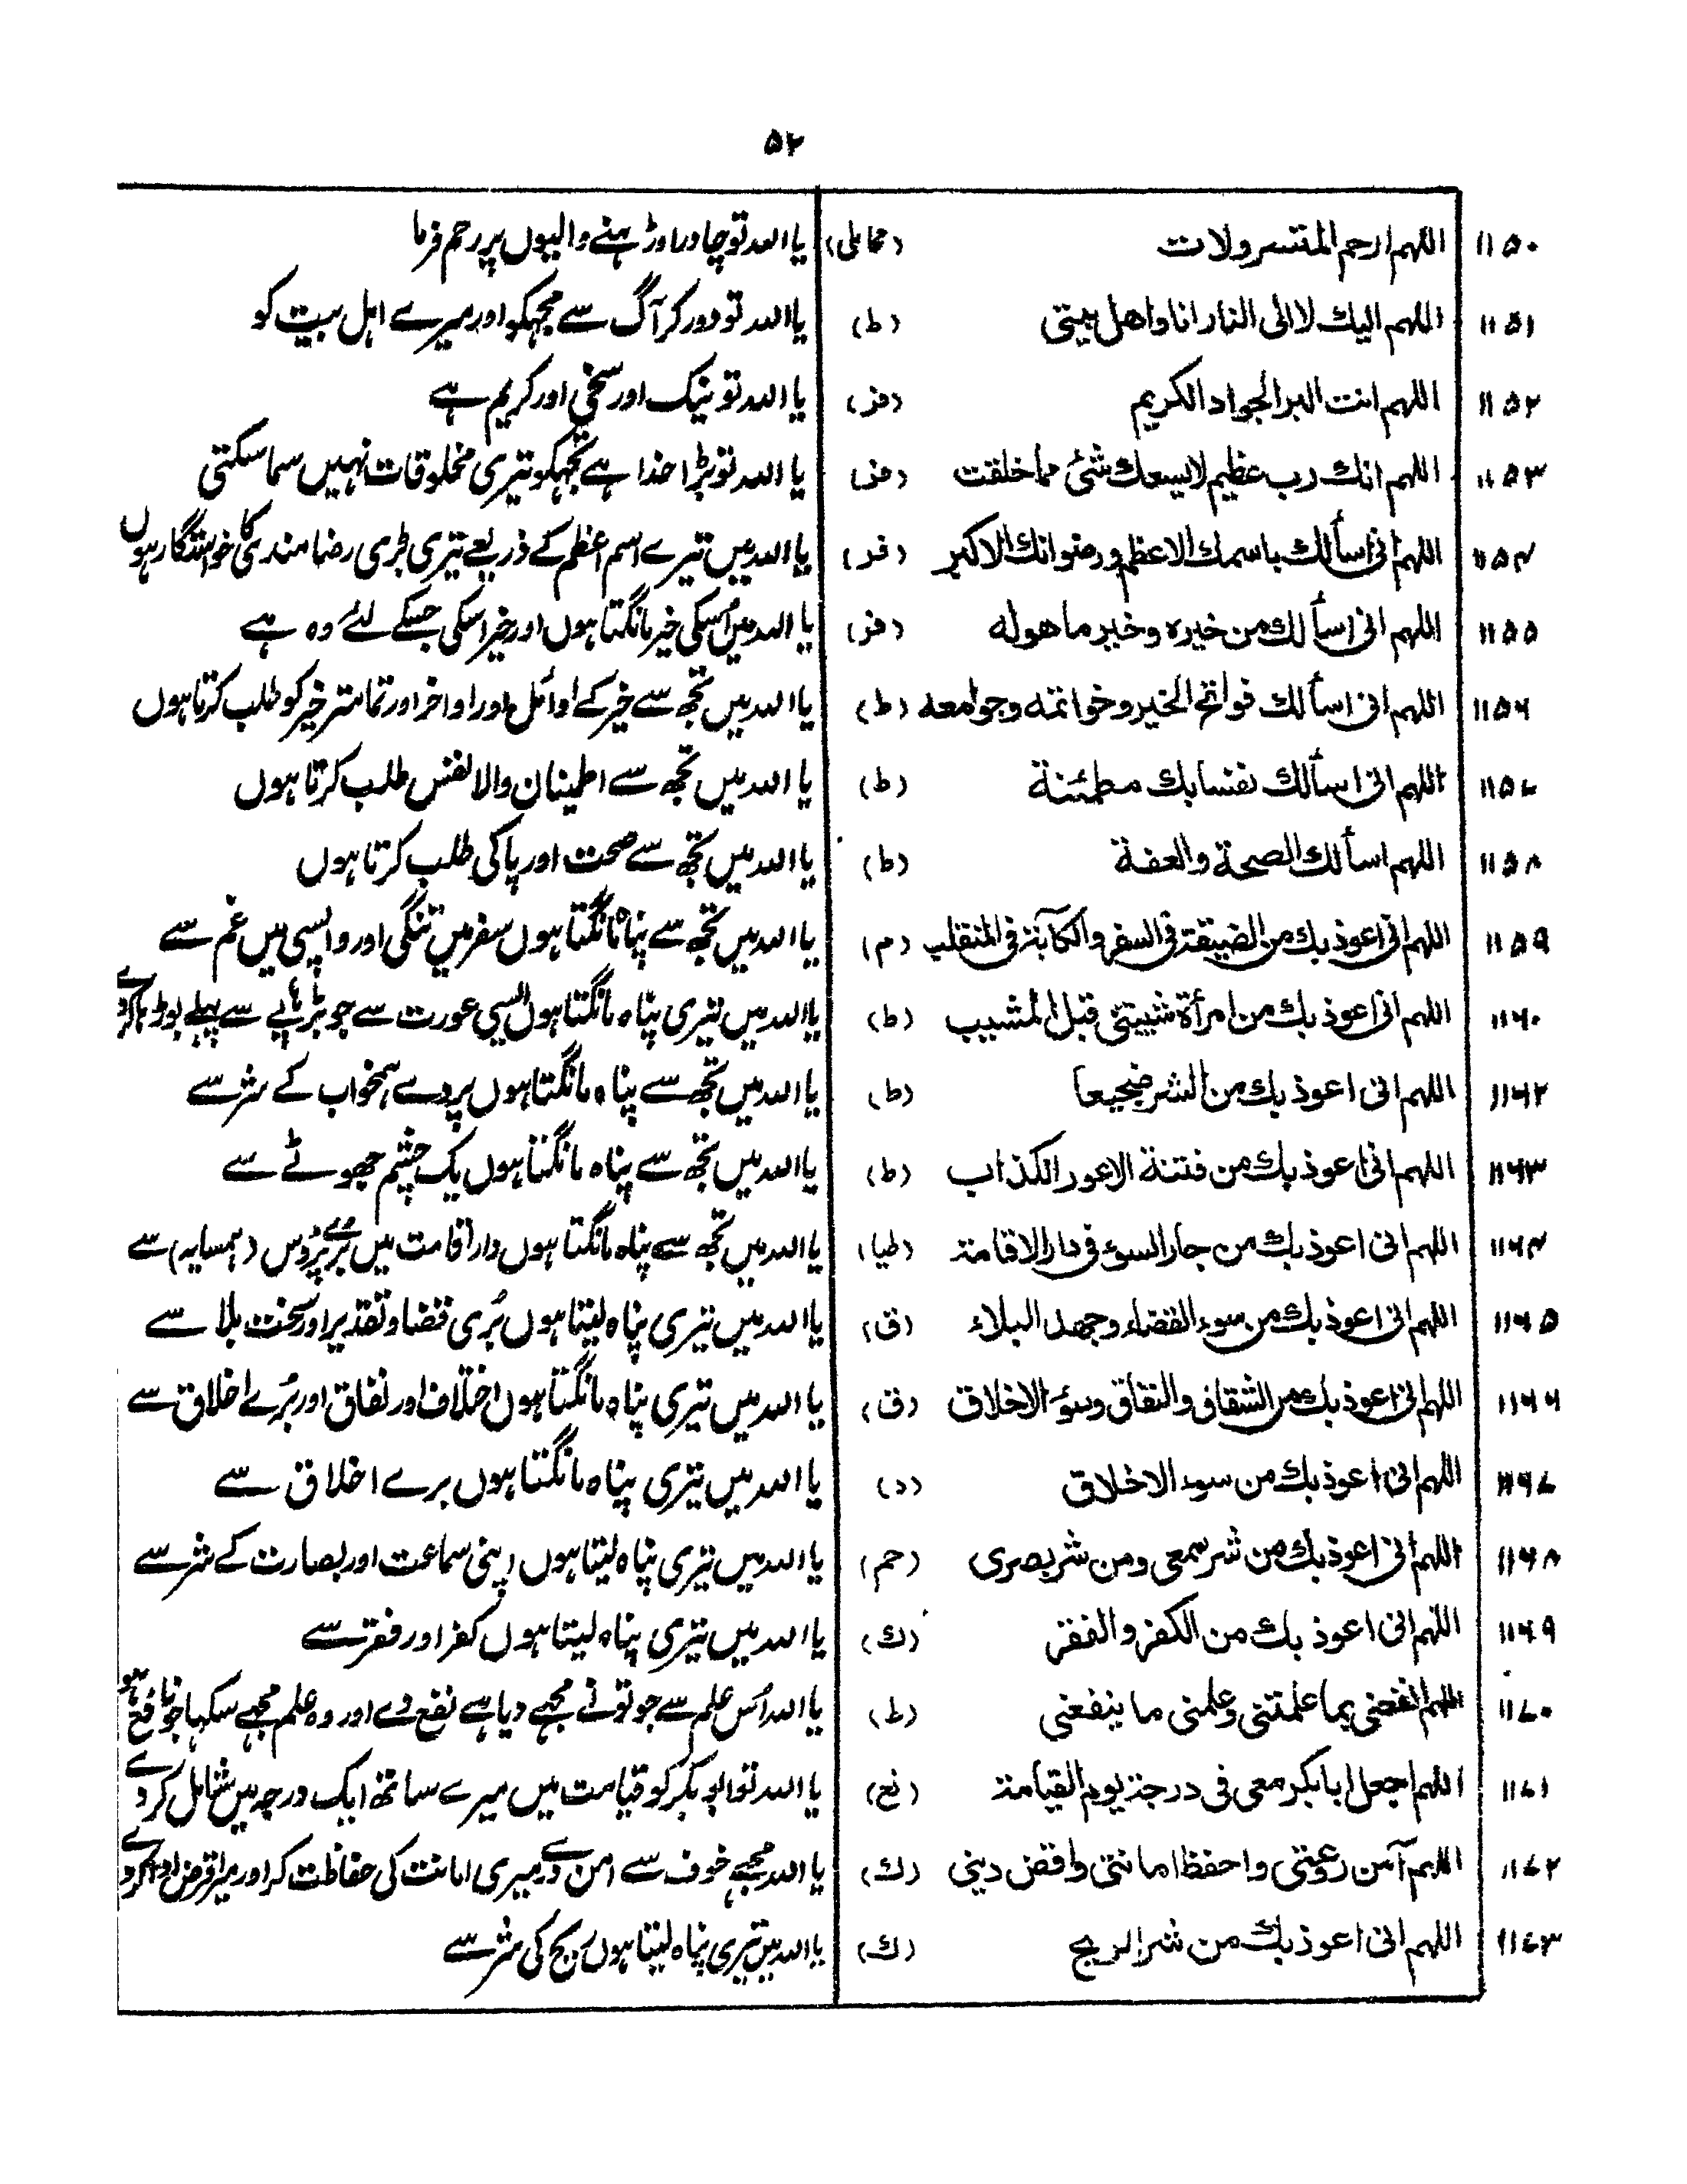 ۵۲
۱۱۵۰ اللهم ارحم المتسرولات (محاملی) یا اللہ تو چادر اوڑہنے والیوں پر رحم فرما
۱۱۵۱ اللهم الیك لا الی النار انا واهل بیتی (ط) یا اللہ تو دور کر آگ سے مجہکو اور میرے اہل بیت کو
۱۱۵۲ اللهم انت البر الجواد الکریم (فر) یا اللہ تو نیک اور سخی اور کریم ہے
۱۱۵۳ اللهم انك رب عظیم لا یسعك شئ مما خلقت (فر) یا اللہ تو بڑا خدا ہے تجہکو تیری مخلوقات نہیں سما سکتی
۱۱۵۴ اللهم انی اسألك باسمك الاعظم ورضوانك الاکبر (فر) یا اللہ میں تیرے اسم اعظم کے ذریعے تیری بڑی رضامندی کا خواستگار ہوں
۱۱۵۵ اللهم انی اسألك من خیره وخیر ما هوله (فر) یا اللہ میں اُسکی خیر مانگتا ہوں اور خیر اسکی جسکے لئے وہ ہے
۱۱۵۶ اللهم انی اسألك فواتح الخیر وخواتمه وجوامعه (ط) یا اللہ میں تجھ سے خیر کے اوائل اور اواخر اور تمامتر خیر کو طلب کرتا ہوں
۱۱۵۷ اللهم انی اسألك نفسا بك مطمئنة (ط) یا اللہ میں تجھ سے اطمینان والا نفس طلب کرتا ہوں
۱۱۵۸ اللهم اسألك الصحة والعفة (ط) یا اللہ میں تجھ سے صحت اور پاکی طلب کرتا ہوں
۱۱۵۹ اللهم انی اعوذ بك من الضیقة فی السفر والکآبة فی المنقلب (م) یا اللہ میں تجھ سے پناہ مانگتا ہوں سفر میں تنگی اور واپسی میں غم سے
۱۱۶۰ اللهم انی اعوذ بك من امرأة تشیبنی قبل المشیب (ط) یا اللہ میں تیری پناہ مانگتا ہوں ایسی عورت سے جو بڑہاپے سے پہلے بوڑہا کردے
۱۱۶۲ اللهم انی اعوذ بك من الشر ضجیعا (ط) یا اللہ میں تجھ سے پناہ مانگتا ہوں ہمخواب کے شر سے
۱۱۶۳ اللهم انی اعوذ بك من فتنة الاعور الکذاب (ط) یا اللہ میں تجھ سے پناہ مانگتا ہوں یک چشم جھوٹے سے
۱۱۶۴ اللهم انی اعوذ بك من جار السوء فی دار الاقامة (طیا) یا اللہ میں تجھ سے پناہ مانگتا ہوں دار اقامت میں بُرے پڑوس (ہمسایہ) سے
۱۱۶۵ اللهم انی اعوذ بك من سوء القضاء وجهد البلاء (ق) یا اللہ میں تیری پناہ لیتا ہوں بُری قضا و تقدیر اور سخت بلا سے
۱۱۶۶ اللهم انی اعوذ بك من الشقاق والنفاق وسوء الاخلاق (ق) یا اللہ میں تیری پناہ مانگتا ہوں اختلاف اور نفاق اور بُرے اخلاق سے
۱۱۶۷ اللهم انی اعوذ بك من سوء الاخلاق (د) یا اللہ میں تیری پناہ مانگتا ہوں برے اخلاق سے
۱۱۶۸ اللهم انی اعوذ بك من شر سمعی ومن شر بصری (حم) یا اللہ میں تیری پناہ لیتا ہوں اپنی سماعت اور بصارت کے شر سے
۱۱۶۹ اللهم انی اعوذ بك من الکفر والفقر (ك) یا اللہ میں تیری پناہ لیتا ہوں کفر اور فقر سے
۱۱۷۰ اللهم انفعنی بما علمتنی وعلمنی ما ینفعنی (ط) یا اللہ اُس علم سے جو تونے مجہے دیا ہے نفع دے اور وہ علم مجہے سکہا جو نافع ہو
۱۱۷۱ اللهم اجعل ابا بکر معی فی درجة یوم القیامة (نع) یا اللہ تو ابو بکر کو قیامت میں میرے ساتھ ایک درجہ میں شامل کر دے
۱۱۷۲ اللهم آمن روعتی واحفظ امانتی واقض دینی (ك) یا اللہ مجہے خوف سے امن دے میری امانت کی حفاظت کر اور میرا قرض ادا کردے
۱۱۷۳ اللهم انی اعوذ بك من شر الریح (ك) یا اللہ میں تیری پناہ لیتا ہوں ریح کی شر سے